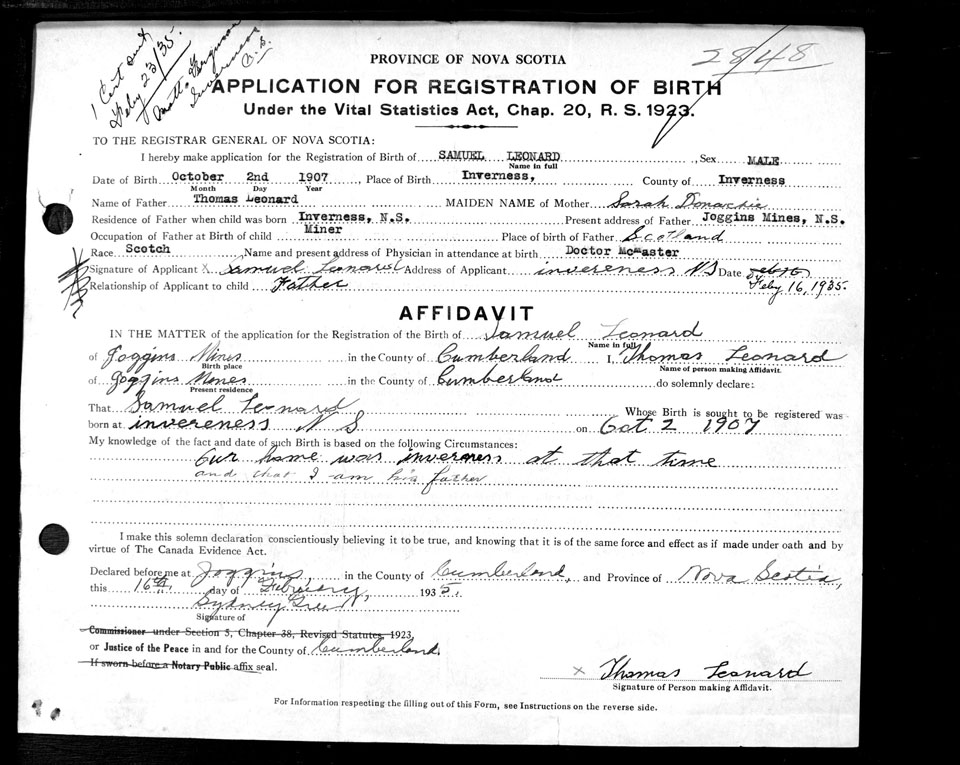 1 Cert sent
Feby 23/35.
Matt. Ferguson
Inverness
N.S.
2848
PROVINCE OF NOVA SCOTIA
APPLICATION FOR REGISTRATION OF BIRTH
Under the Vital Statistics Act, Chap. 20, R. S. 1923.
TO THE REGISTRAR GENERAL OF NOVA SCOTIA:
I hereby make application for the Registration of Birth of SAMUEL LEONARD, Sex MALE
Name in full
Date of Birth October 2nd 1907, Place of Birth Inverness, County of Inverness
Month Day Year
Name of Father Thomas Leonard MAIDEN NAME of Mother Sarah Donachie
Residence of Father when child was born Inverness, N.S. Present address of Father Joggins Mines, N.S.
Occupation of Father at Birth of child Miner Place of birth of Father Scotland
Race Scotch, Name and present address of Physician in attendance at birth Doctor McMaster
Signature of Applicant X Samuel Leonard Address of Applicant invereness N S Date
Relationship of Applicant to child Father Feby 16, 1935.
AFFIDAVIT
IN THE MATTER of the application for the Registration of the Birth of Samuel Leonard
Name in full
of Joggins Mines in the County of Cumberland I, Thomas Leonard
Birth place Name of person making Affidavit.
of Joggins Mones in the County of Cumberland do solemnly declare:
Present residence
That Samuel Leonard Whose Birth is sought to be registered was
born at invereness N S on Oct 2 1907
My knowledge of the fact and date of such Birth is based on the following Circumstances:
Our home was inverness at that time
and that I am his father
I make this solemn declaration conscientiously believing it to be true, and knowing that it is of the same force and effect as if made under oath and by
virtue of The Canada Evidence Act.
Declared before me at Joggins, in the County of Cumberland, and Province of Nova Scotia,
this 16th day of February, 1935.
Sydney
Signature of
Commissioner under Section 5, Chapter 38, Revised Statutes, 1923,
or Justice of the Peace in and for the County of Cumberland.
If sworn before a Notary Public affix seal.
x Thomas Leonard
Signature of Person making Affidavit.
For Information respecting the filling out of this Form, see Instructions on the reverse side.